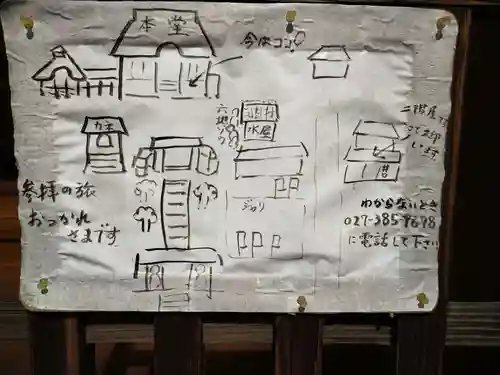 本堂
今はココ!
カネ
六地ゾウ
水屋
二階屋で
い〼
参拝の旅
おつかれ
さまです
わからないとき
027-385-9698
に電話して下さい